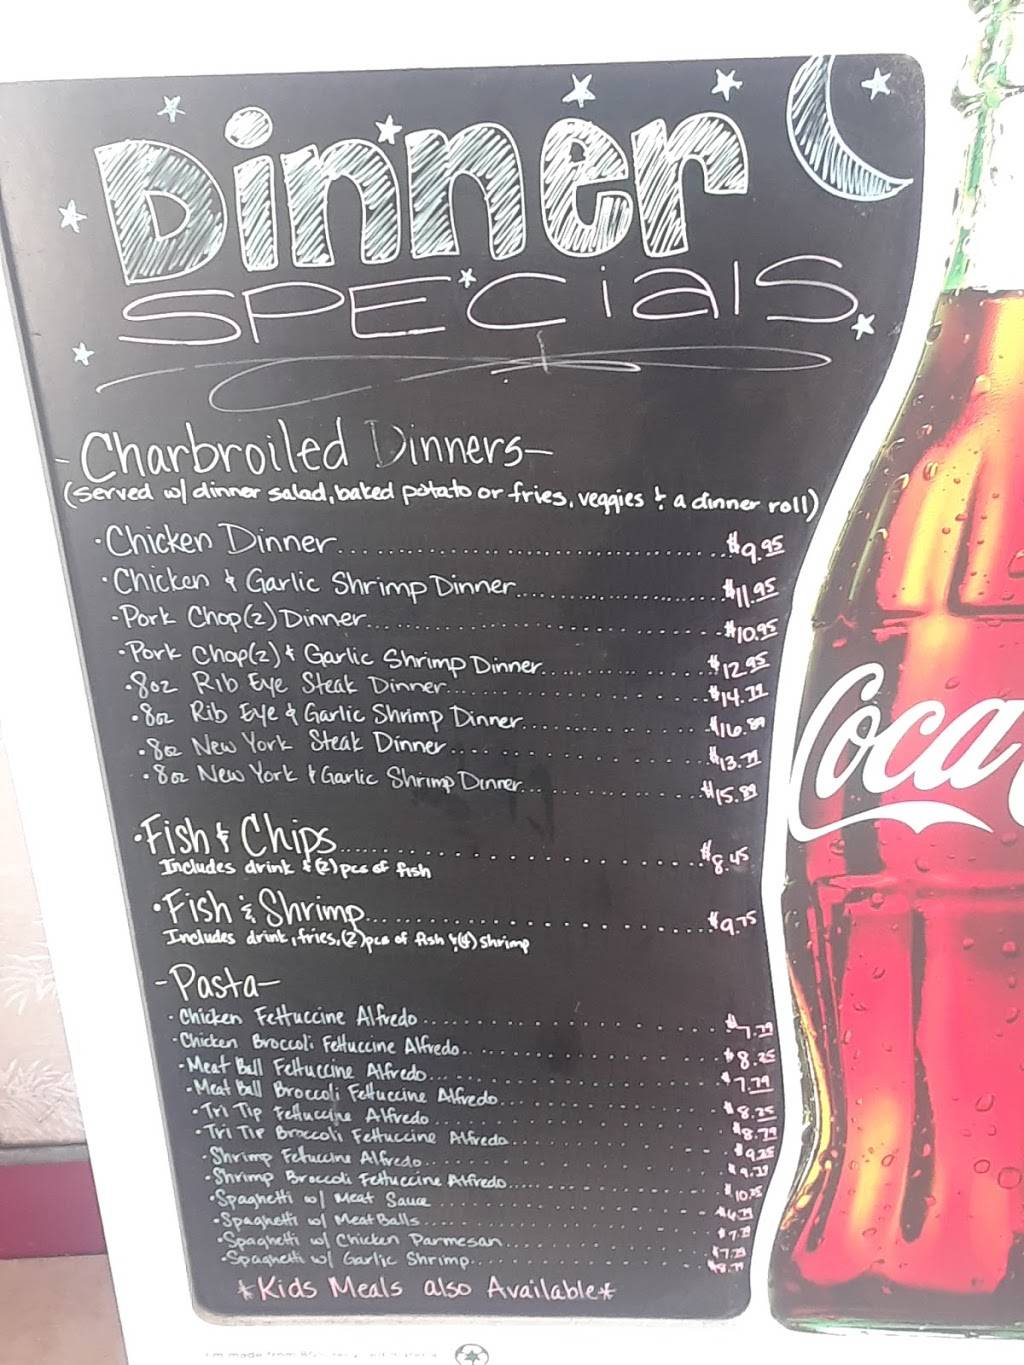 Dinner
SPECialS
- Charbroiled Dinners -
(served w/ dinner salad, baked potato or fries, veggies & a dinner roll)
• Chicken Dinner $9.95
• Chicken & Garlic Shrimp Dinner $11.95
• Pork Chop (2) Dinner $10.95
• Pork Chop (2) & Garlic Shrimp Dinner $12.95
• 8oz Rib Eye Steak Dinner
• 8oz Rib Eye & Garlic Shrimp Dinner $16.89
• 8oz New York Steak Dinner
• 8oz New York & Garlic Shrimp Dinner $15.89
• Fish & Chips $8.45
Includes drink & (2) pcs of fish
• Fish & Shrimp $9.75
Includes drink, fries, (2) pcs of fish & (4) shrimp
- Pasta -
• Chicken Fettuccine Alfredo
• Chicken Broccoli Fettuccine Alfredo $8.25
• Meat Ball Fettuccine Alfredo $7.79
• Meat Ball Broccoli Fettuccine Alfredo $8.25
• Tri Tip Fettuccine Alfredo $8.79
• Tri Tip Broccoli Fettuccine Alfredo $9.25
• Shrimp Fettuccine Alfredo
• Shrimp Broccoli Fettuccine Alfredo
• Spaghetti w/ Meat Sauce
• Spaghetti w/ Meat Balls
• Spaghetti w/ Chicken Parmesan
• Spaghetti w/ Garlic Shrimp
*Kids Meals also Available*
Coca